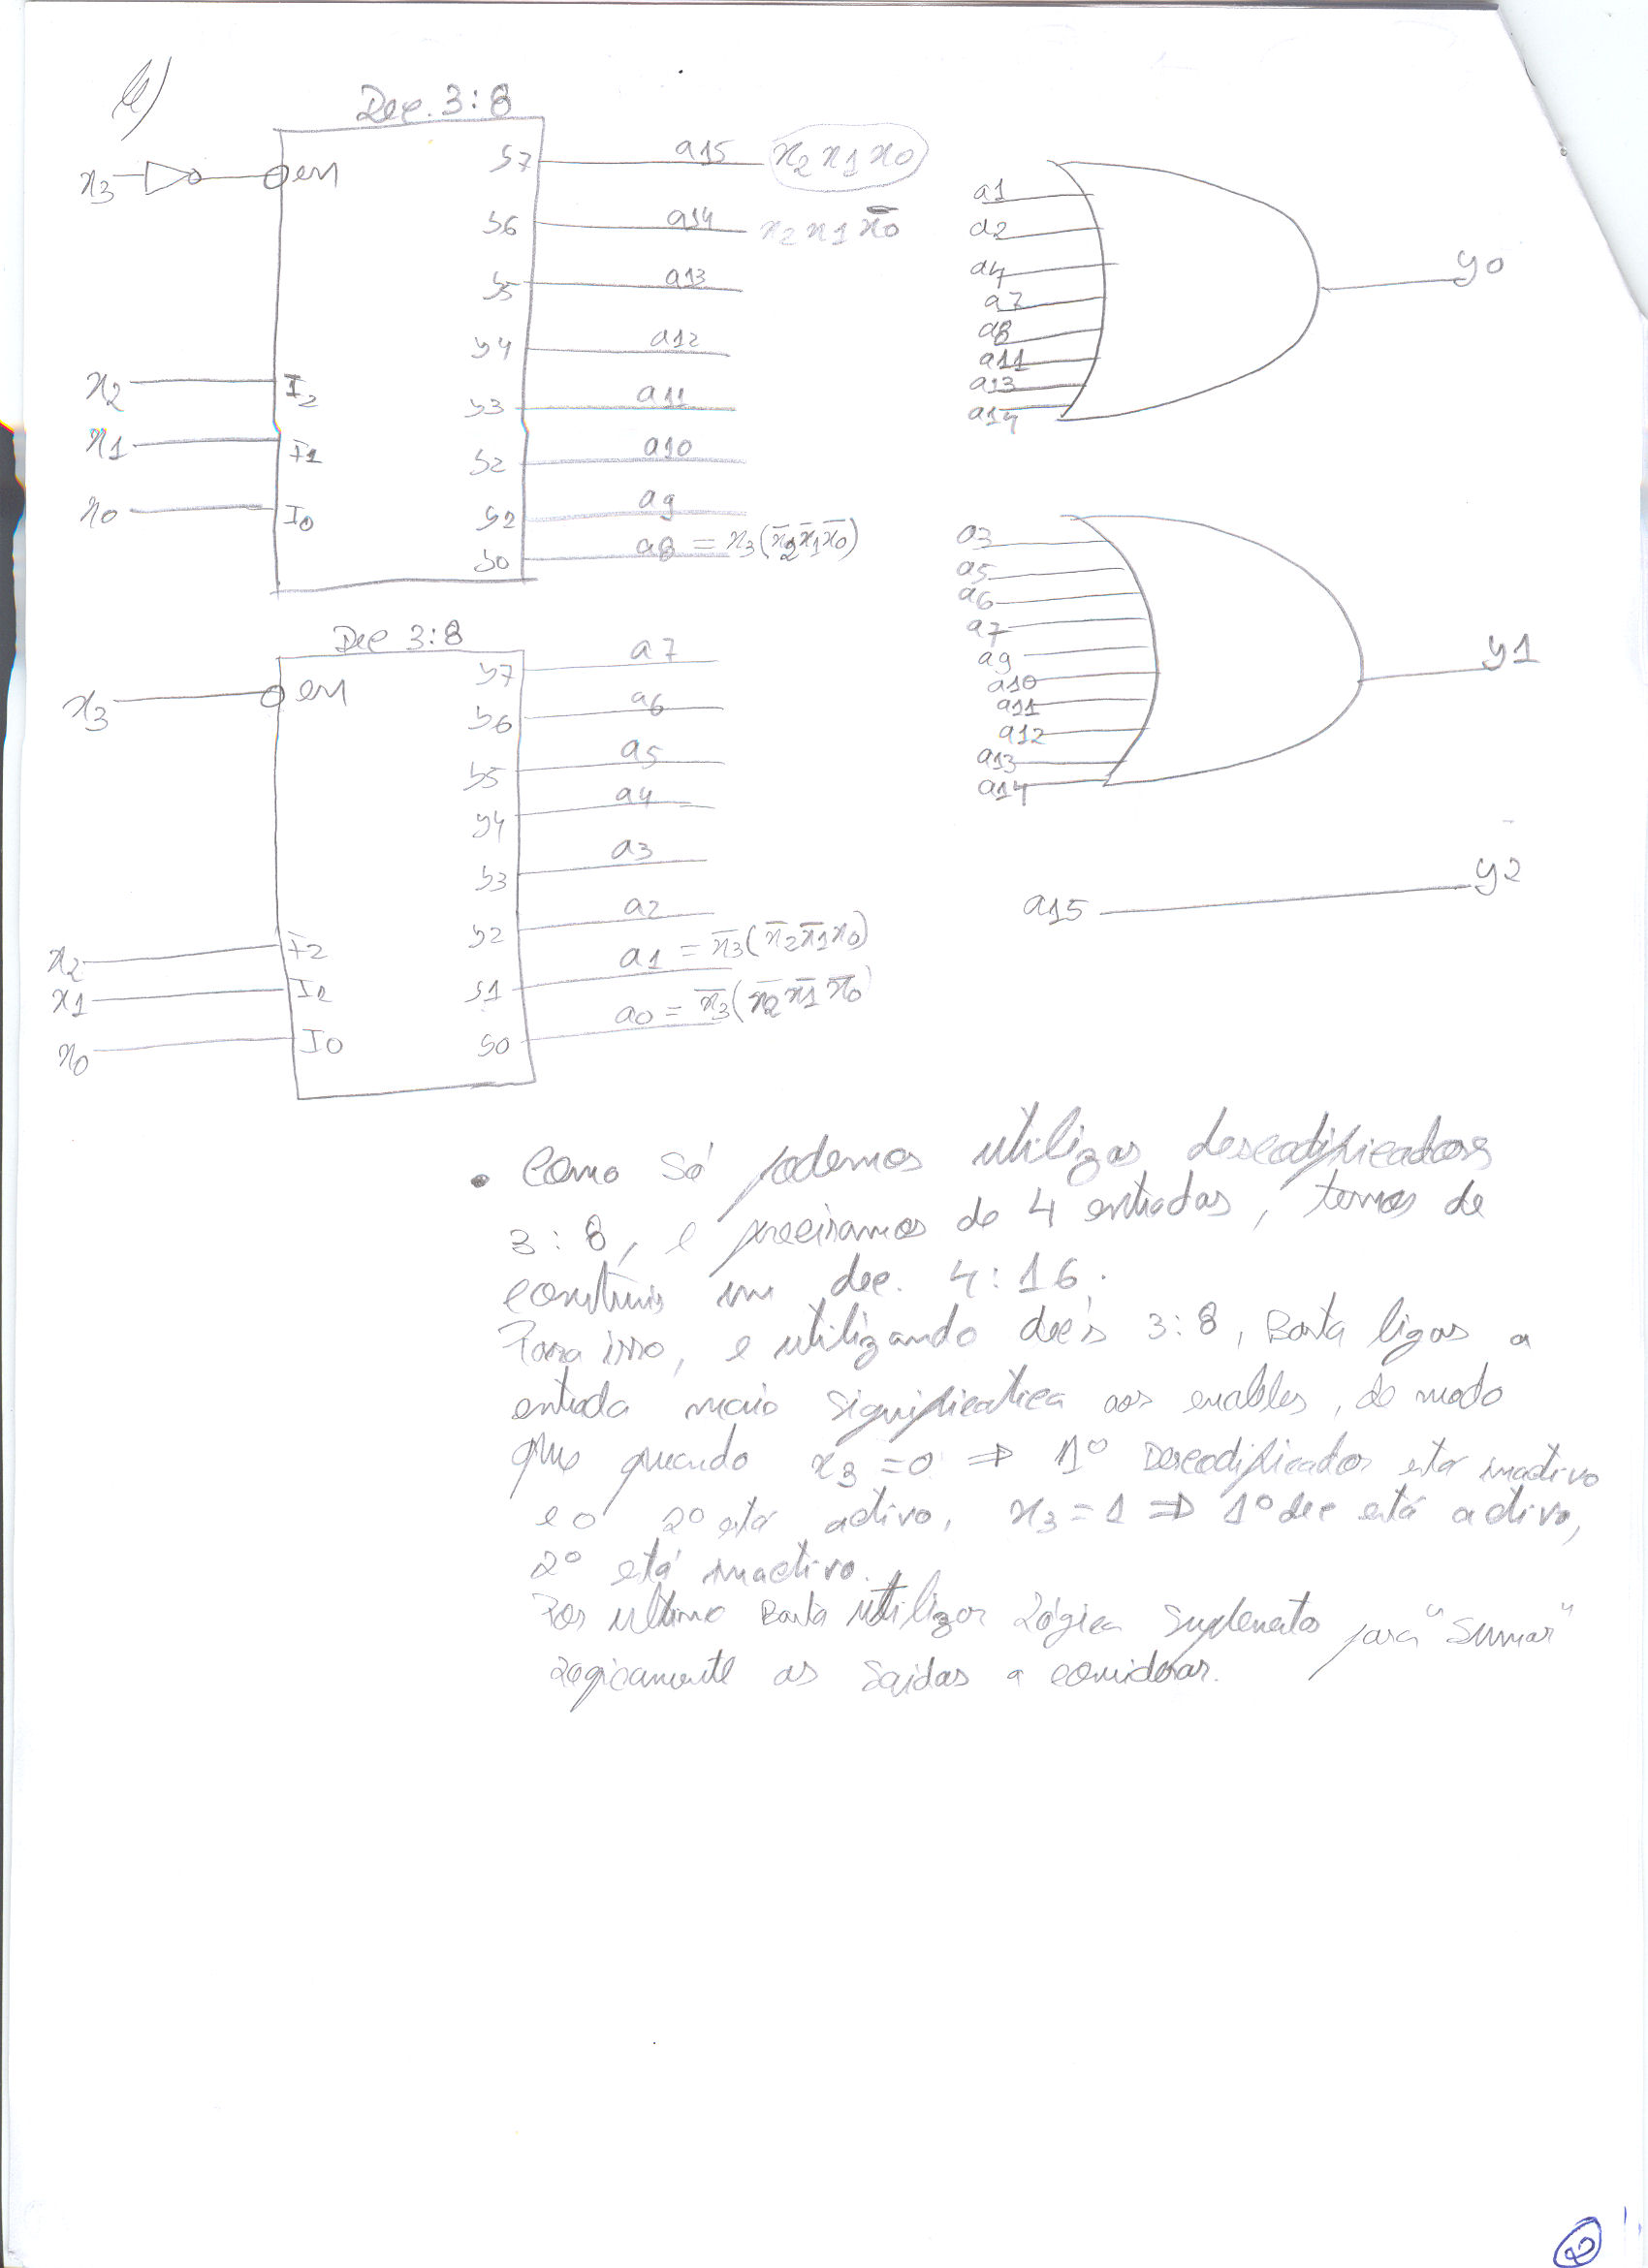 Dec. 3:8
x3
en
x2
I2
x1
I1
x0
I0
S7 a15 x2 x1 x0
S6 a14 x2 x1 x̅0
S5 a13
S4 a12
S3 a11
S2 a10
S2 a9
S0 a8 = x3(x̅2x̅1x̅0)
Dec 3:8
x3
en
x2
I2
x1
I1
x0
I0
S7 a7
S6 a6
S5 a5
S4 a4
S3 a3
S2 a2
S1 a1 = x̅3(x̅2x̅1x0)
S0 a0 = x̅3(x̅2x̅1x̅0)
a1
a2
a4
a7
a8
a11
a13
a14
y0
a3
a5
a6
a7
a9
a10
a11
a12
a13
a14
y1
a15 y2
• Como só podemos utilizar descodificadores
3:8, e precisamos de 4 entradas, temos de
construir um dec. 4:16.
Para isso, e utilizando dec's 3:8, Basta ligar a
entrada mais significativa aos enables, de modo
que quando x3=0 ⇒ 1º Descodificador está inactivo
e o 2º está activo, x3=1 ⇒ 1º dec está activo,
2º está inactivo.
Por ultimo Basta utilizar Lógica Suplementar para "Somar"
Logicamente as saidas a considerar.